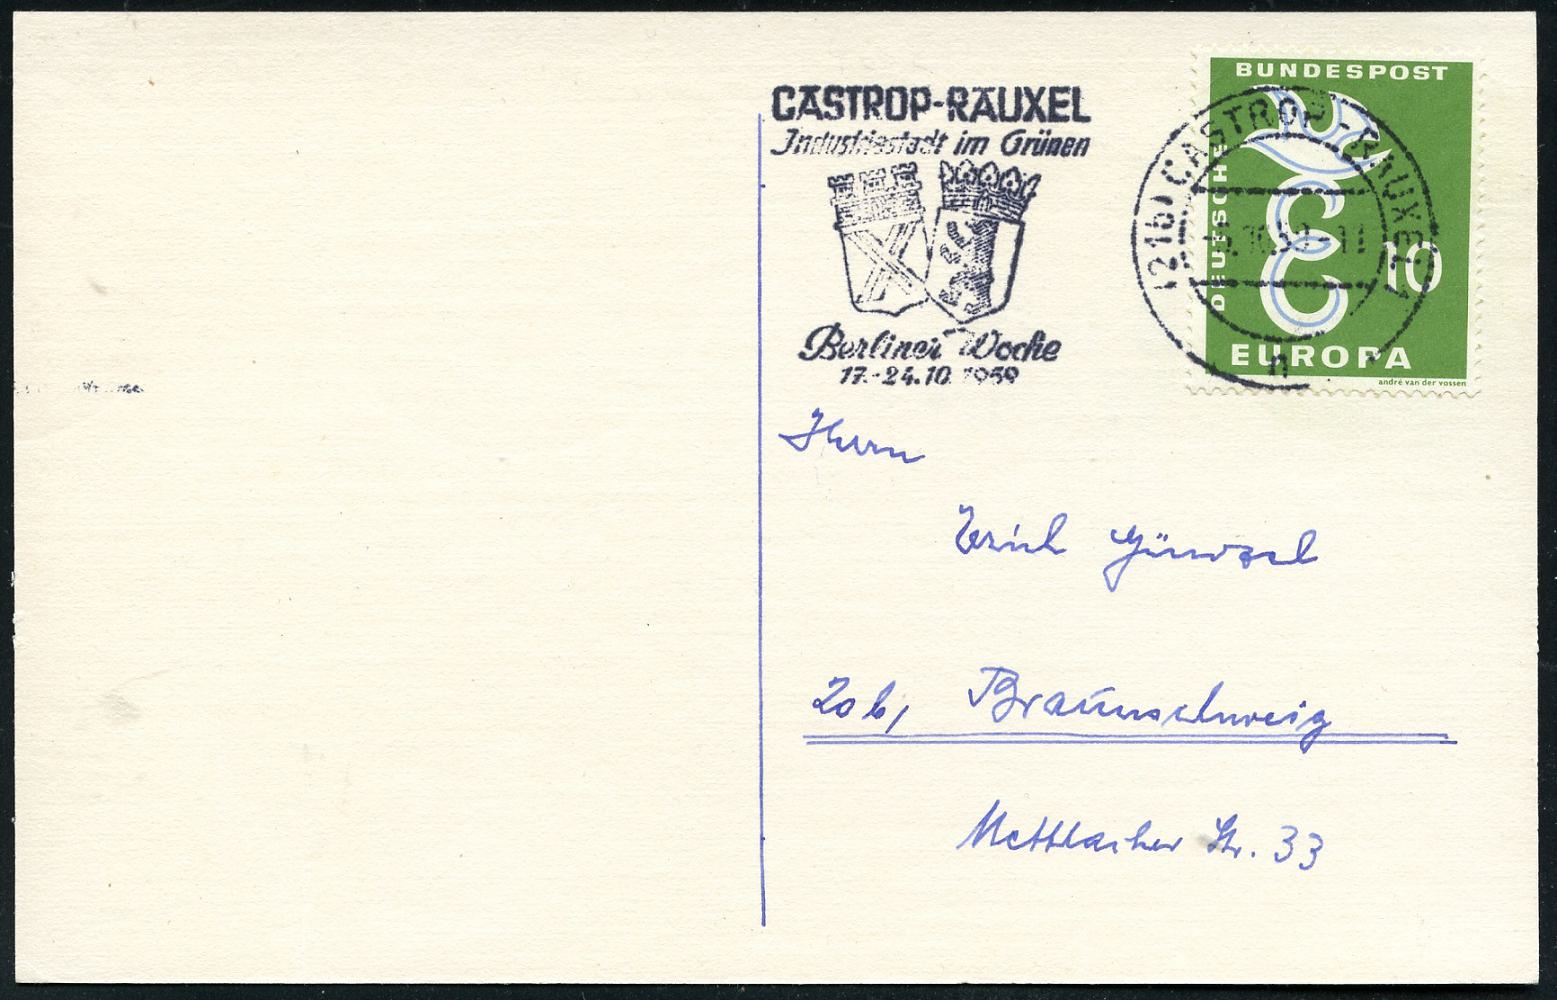 CASTROP-RAUXEL
Industriestadt im Grünen
Berliner Woche
17.-24.10.1959
BUNDESPOST
DEUTSCHE
10
EUROPA
andré van der vossen
(21b) CASTROP-RAUXEL 1
.10.59-11
n
Herrn
Erich Günzel
20b, Braunschweig
Mettlacher Str. 33